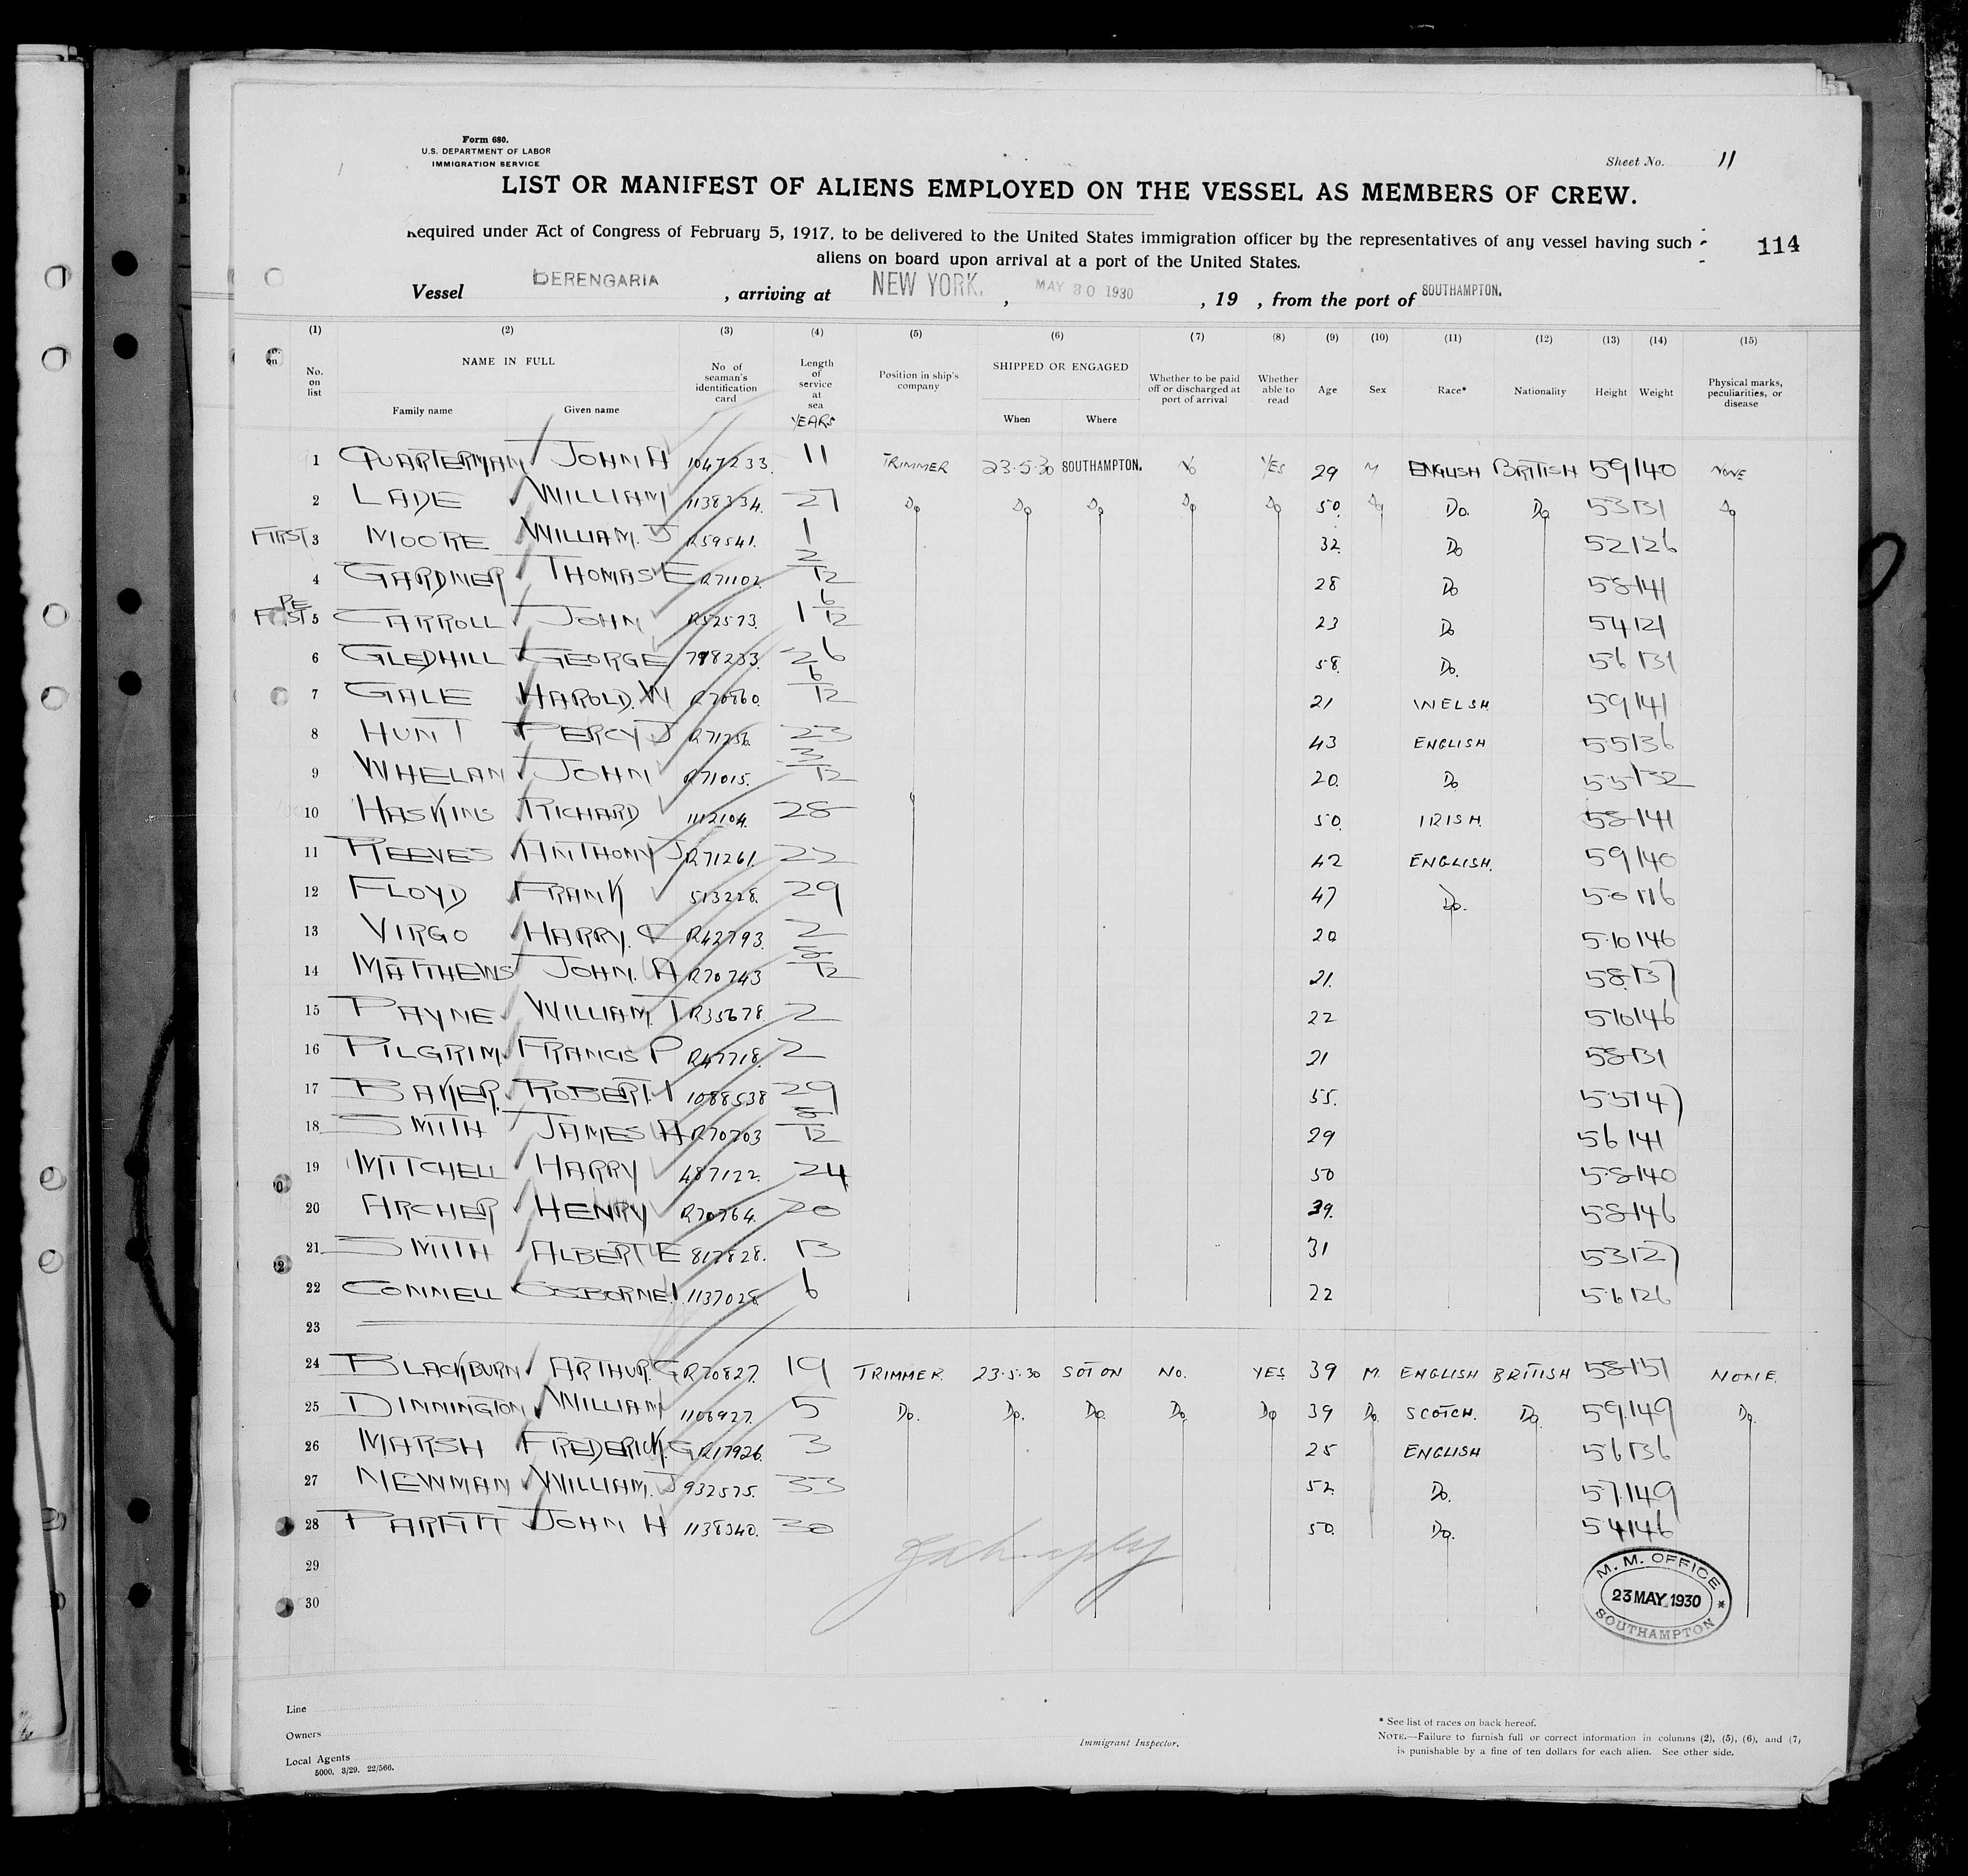 Form 680.
U.S. DEPARTMENT OF LABOR
IMMIGRATION SERVICE
Sheet No. 11
LIST OR MANIFEST OF ALIENS EMPLOYED ON THE VESSEL AS MEMBERS OF CREW.
Required under Act of Congress of February 5, 1917, to be delivered to the United States immigration officer by the representatives of any vessel having such
aliens on board upon arrival at a port of the United States.
114
Vessel BERENGARIA , arriving at NEW YORK. , MAY 30 1930 , 19 , from the port of SOUTHAMPTON.
(1) (2) (3) (4) (5) (6) (7) (8) (9) (10) (11) (12) (13) (14) (15)
No. on list NAME IN FULL Family name Given name No. of seaman's identification card Length of service at sea YEARS Position in ship's company SHIPPED OR ENGAGED When Where Whether to be paid off or discharged at port of arrival Whether able to read Age Sex Race* Nationality Height Weight Physical marks, peculiarities, or disease
1 QUARTERMAN JOHN A 1047233. 11 TRIMMER 23.5.30 SOUTHAMPTON. No YES 29 M ENGLISH BRITISH 59 140 NONE
2 LADE WILLIAM 1138334. 27 Do Do Do Do Do 50. Do Do. Do 53 131 Do
FIRST 3 MOORE WILLIAM. J R59541. 1 32. Do 52 126
4 GARDNER THOMAS E R71102 2/12 28 Do 58 141
5 CARROLL JOHN R52573. 1 6/12 23 Do 54 121
6 GLEDHILL GEORGE 798233. 26 58. Do. 56 131
7 GALE HAROLD. W R70860. 6/12 21 WELSH. 59 141
8 HUNT PERCY J R71256. 23 43 ENGLISH 5.5 136
9 WHELAN JOHN R71015. 3/12 20. Do 5.5 132
10 HASKINS RICHARD 1112104. 28 50. IRISH. 58 141
11 REEVES ANTHONY J R71261. 22 42 ENGLISH. 59 140
12 FLOYD FRANK 513228. 29 47 Do. 5.0 116
13 VIRGO HARRY. C R42793. 2 20 5.10 146
14 MATTHEWS JOHN. A R70743 8/12 21. 58 137
15 PAYNE WILLIAM. T R35678. 2 22 510 146
16 PILGRIM FRANCIS P R47718. 2 21 58 131
17 BAKER ROBERT. 1088538 29 55. 5.5 147
18 SMITH JAMES A R70703 8/12 29 56 141
19 MITCHELL HARRY 487122. 24 50 5.8 140
20 ARCHER HENRY R70764. 20 39. 58 146
21 SMITH ALBERT E 817828. 13 31 53 127
22 CONNELL OSBORNE. 1137028 6 22 5.6 126
23
24 BLACKBURN ARTHUR. G R70827. 19 TRIMMER. 23.5.30 SOTON No. YES 39 M. ENGLISH BRITISH 58 151 NONE.
25 DINNINGTON WILLIAM 1106927. 5 Do. Do. Do. Do. Do 39 Do. SCOTCH. Do. 59 149 Do.
26 MARSH FREDERICK. G R17926. 3 25 ENGLISH 56 136
27 NEWMAN WILLIAM. J 932575. 33 52. Do. 57 149
28 PARFITT JOHN H 1138340. 30 50. Do. 54 146
29
30
M. M. OFFICE
23 MAY 1930
SOUTHAMPTON
Line
Owners
Local Agents
5000. 3/29. 22/566.
Immigrant Inspector.
* See list of races on back hereof.
NOTE.—Failure to furnish full or correct information in columns (2), (5), (6), and (7,
is punishable by a fine of ten dollars for each alien. See other side.